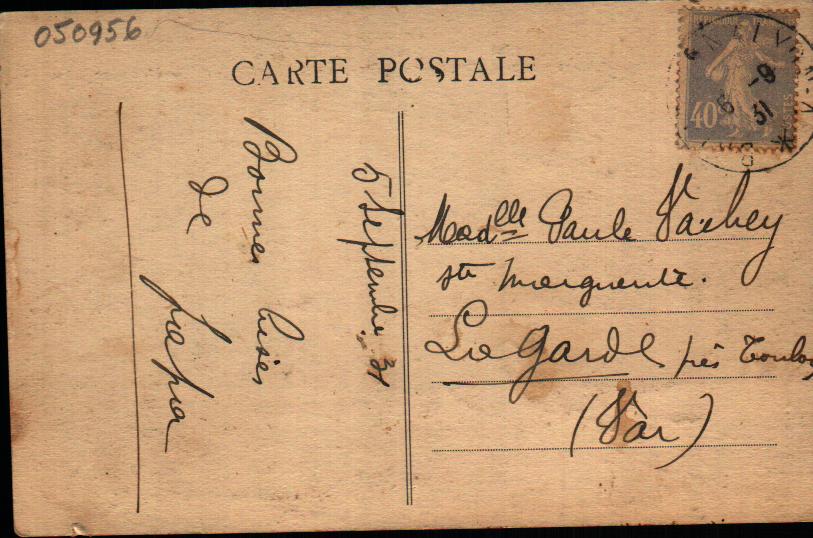 050956
CARTE POSTALE
REPUBLIQUE
40
6 -9
31
5 Septembre 31
Bonnes bises
de
papa
Madelle Paule Vachey
ste marguerite.
La Garde près Toulon
(Var)